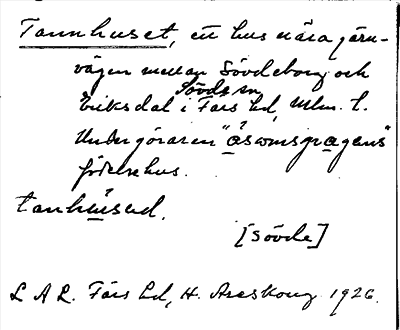 Tannhuset, ett hus nära järn-
vägen mellan Sövdeborg och
Sövds sn
Eriksdal i Färs hd, Mlm. l.
Undergöraren "åsomsgragens"
födelsehus.
tanhúsed.
[Sövde]
L A L. Färs hd, H. Areskoug 1926.